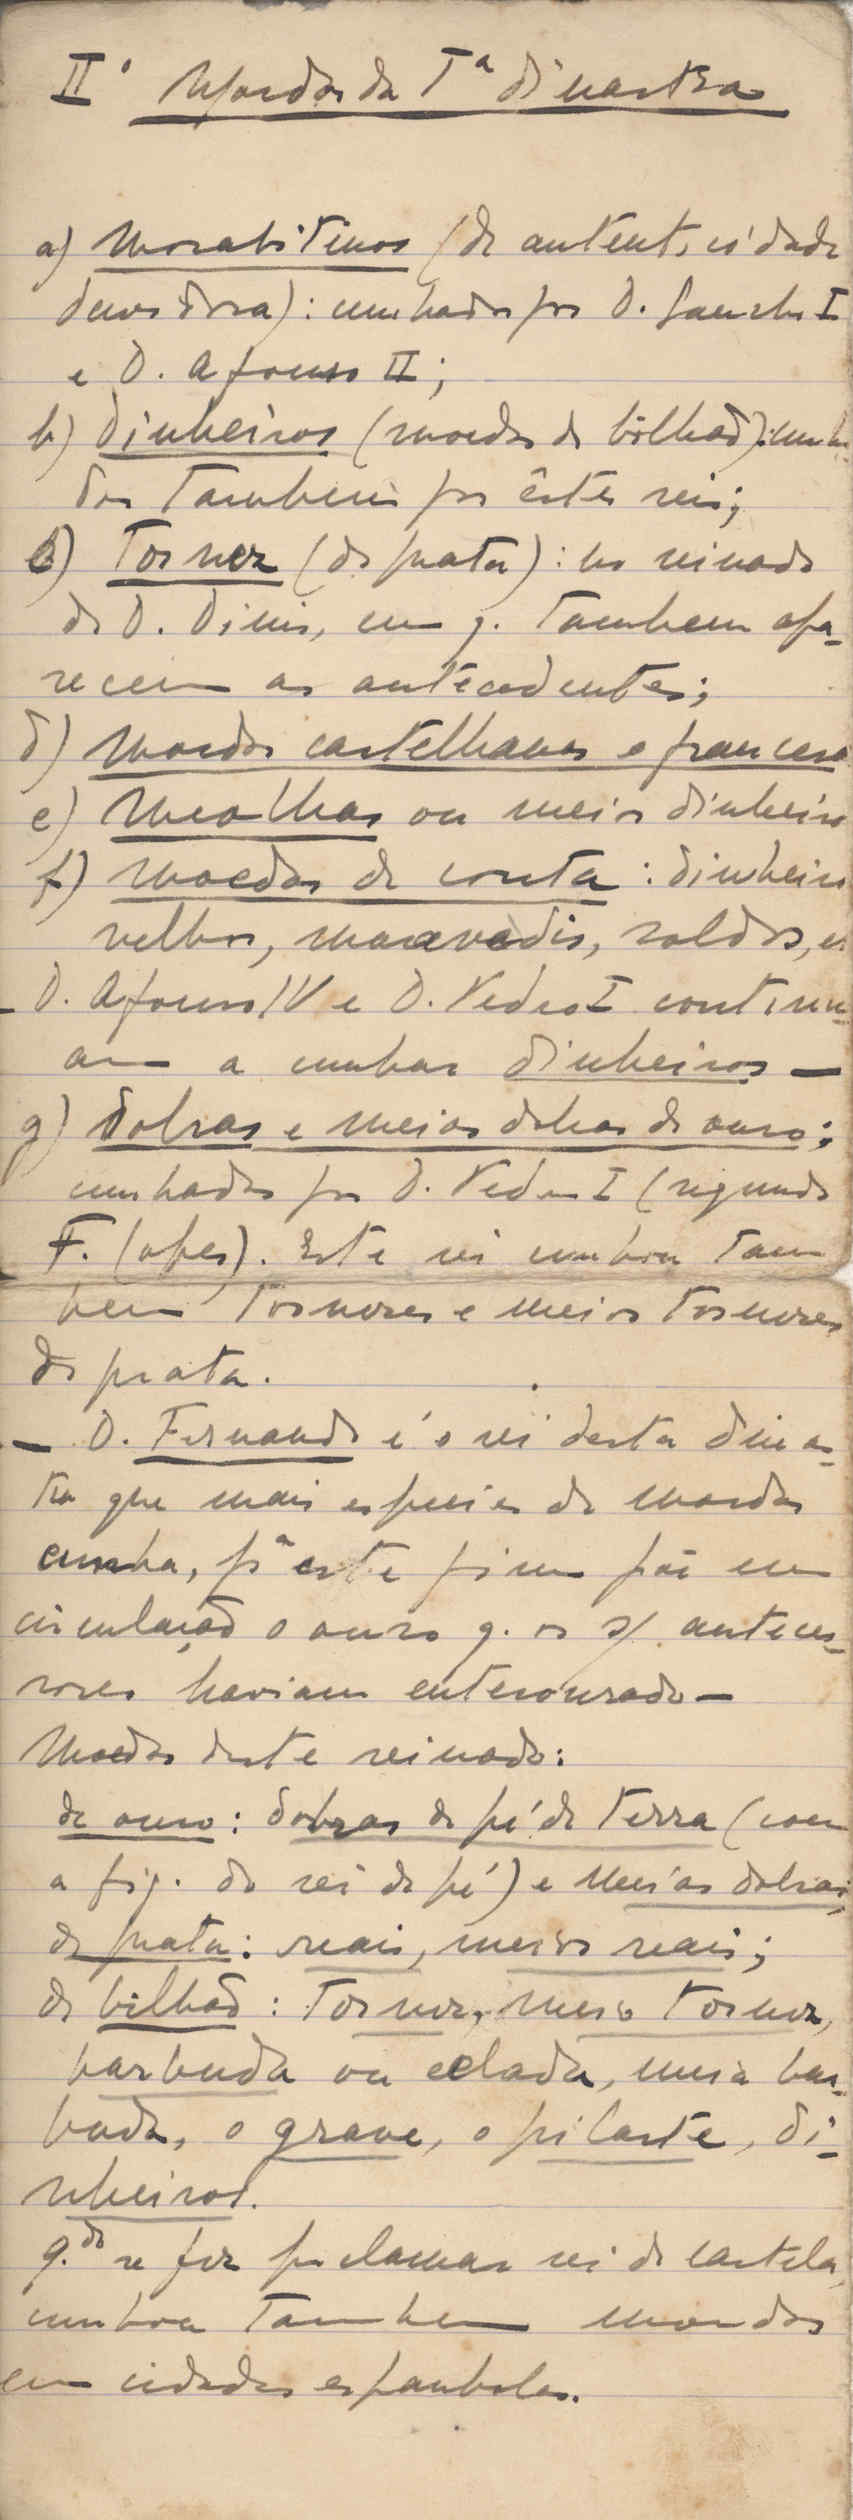 IIº Moedas da Iª dinastia
a) Morabitinos (de autenticidade
duvidosa): cunhados por D. Sancho I
e D. Afonso II;
b) Dinheiros (moedas de bilhão): cunha-
dos tambem por êstes reis;
c) Tornez (de prata): no reinado
de D. Dinis, em q. tambem apa-
recem as antecedentes;
d) Moedas castelhanas e francesas
e) Mealhas ou meios dinheiros
f) moedas de conta: dinheiros
velhos, maravedis, soldos, etc
– D. Afonso IV e D. Pedro I continu-
am a cunhar dinheiros –
g) Dobras e meias dobras de ouro;
cunhadas por D. Pedro I (segundo
F. Lopes). Este rei cunhou tam
bem tornezes e meios tornezes
de prata.
– D. Fernando é o rei desta dinas-
tia que mais especies de moedas
cunha, pª este fim põe em
circulação o ouro q. os s/ anteces-
sores haviam entesourado –
Moedas deste reinado:
de ouro: dobras de pé de terra (com
a fig. do rei de pé) e meias dobras;
de prata: reais, meios reais;
de bilhão: tornez, meio tornez,
barbuda ou celada, meia bar-
buda, o grave, o pilarte, di-
nheiros.
q.do se fez proclamar rei de Castela,
cunhou tambem moedas
em cidades espanholas.